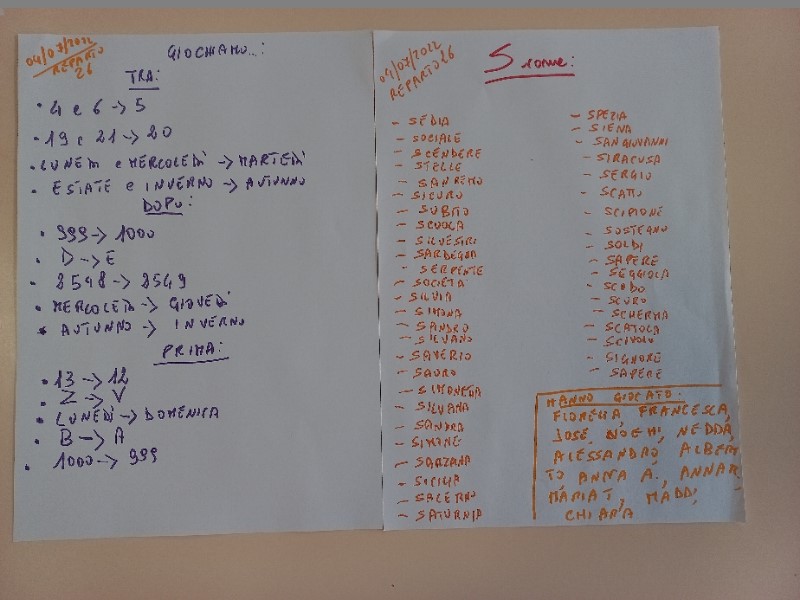 04/07/2022
REPARTO
26
GIOCHIAMO...:
TRA:
• 4 e 6 -> 5
• 19 e 21 -> 20
• LUNEDÌ e MERCOLEDÌ -> MARTEDÌ
• ESTATE e INVERNO -> AUTUNNO
DOPO:
• 999 -> 1000
• D -> E
• 8548 -> 8549
• MERCOLEDÌ -> GIOVEDÌ
• AUTUNNO -> INVERNO
PRIMA:
• 13 -> 12
• Z -> V
• LUNEDÌ -> DOMENICA
• B -> A
• 1000 -> 999
04/07/2022
REPARTO 26
S come:
- SEDIA
- SOCIALE
- SCENDERE
- STELLE
- SANREMO
- SICURO
- SUBITO
- SCUOLA
- SILVESTRI
- SARDEGNA
- SERPENTE
- SOCIETÀ
- SILVIA
- SIMONA
- SANDRO
- SILVANO
- SAVERIO
- SAURO
- SIMONETTA
- SILVANA
- SANDRA
- SIMONE
- SARZANA
- SICILIA
- SALERNO
- SATURNIA
- SPEZIA
- SIENA
- SAN GIOVANNI
- SIRACUSA
- SERGIO
- SCATTO
- SCIPIONE
- SOSTEGNO
- SOLDI
- SAPERE
- SEGGIOLA
- SCODO
- SCURO
- SCHERMA
- SCATOLA
- SCIVOLO
- SIGNORE
- SAPERE
HANNO GIOCATO:
FIORELLA, FRANCESCA,
JOSÈ, NOEMI, NEDDA,
ALESSANDRO, ALBER
TO ANNA A., ANNA M.
MARIA T., MADDI,
CHIARA